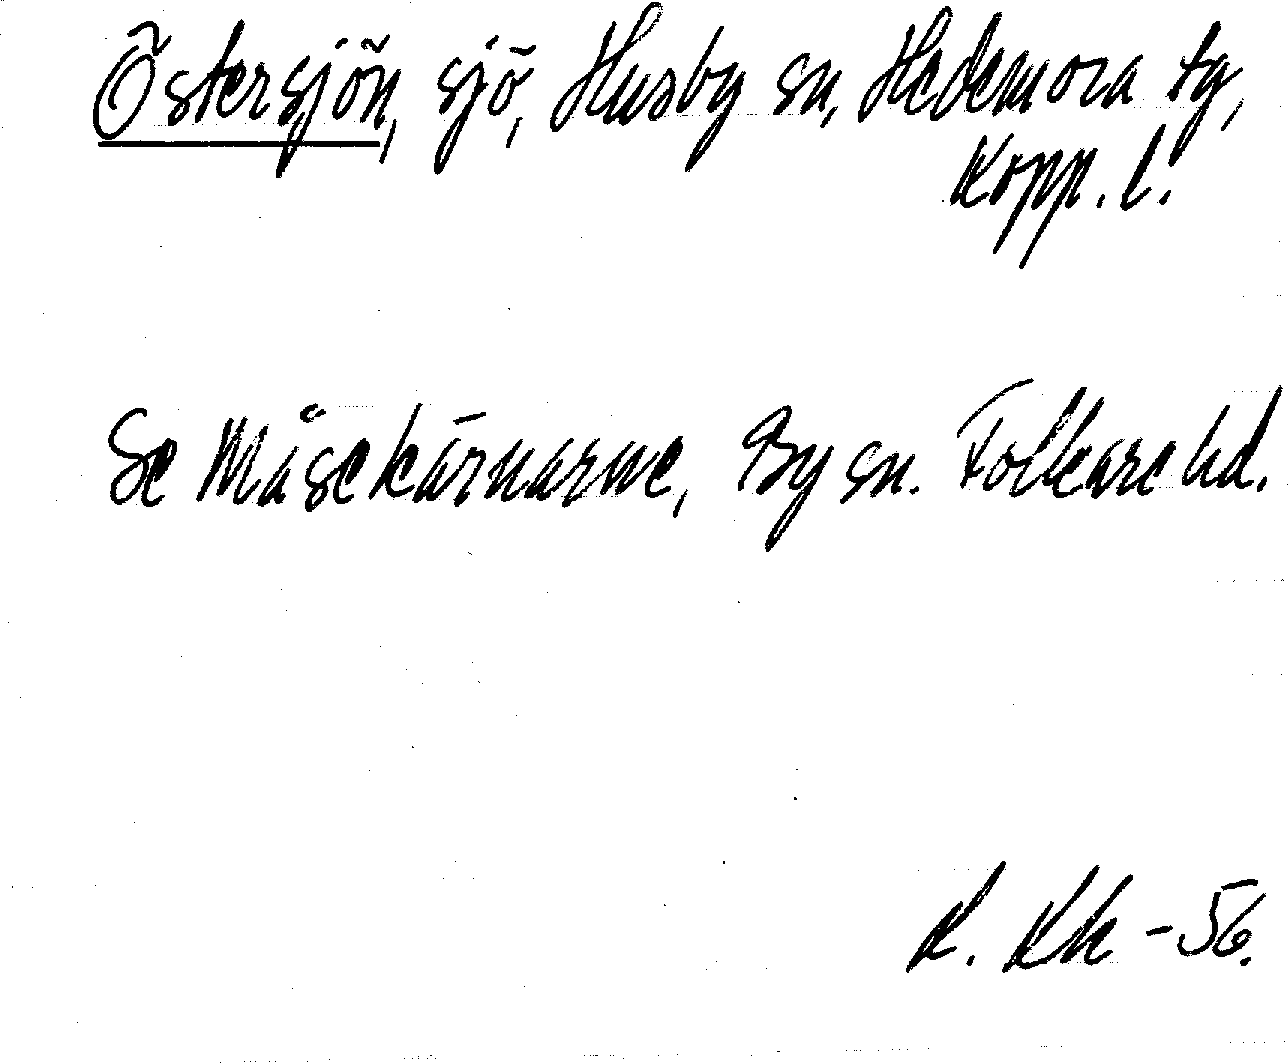 Östersjön, sjö, Husby sn, Hedemora tg,
Kopp. l.
Se Måsekärnarne, By sn. Folkare hd.
K. Kk - 56.